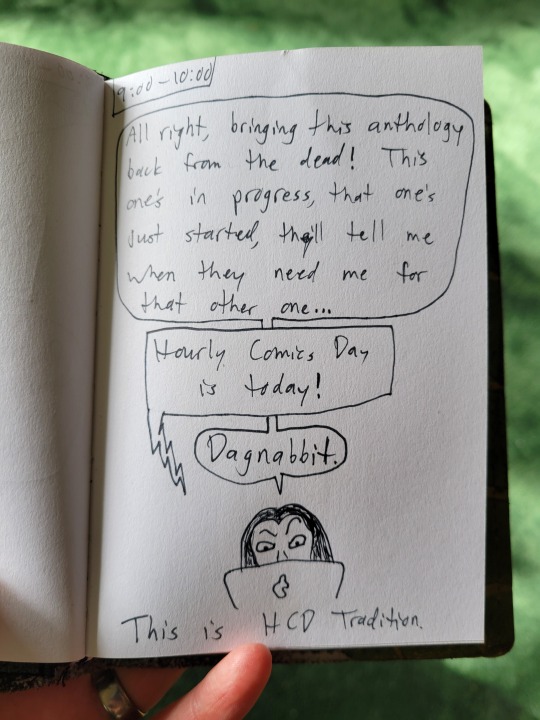 9:00-10:00
All right, bringing this anthology
back from the dead! This
one's in progress, that one's
just started, they'll tell me
when they need me for
that other one...
Hourly Comics Day
is today!
Dagnabbit.
This is HCD Tradition.